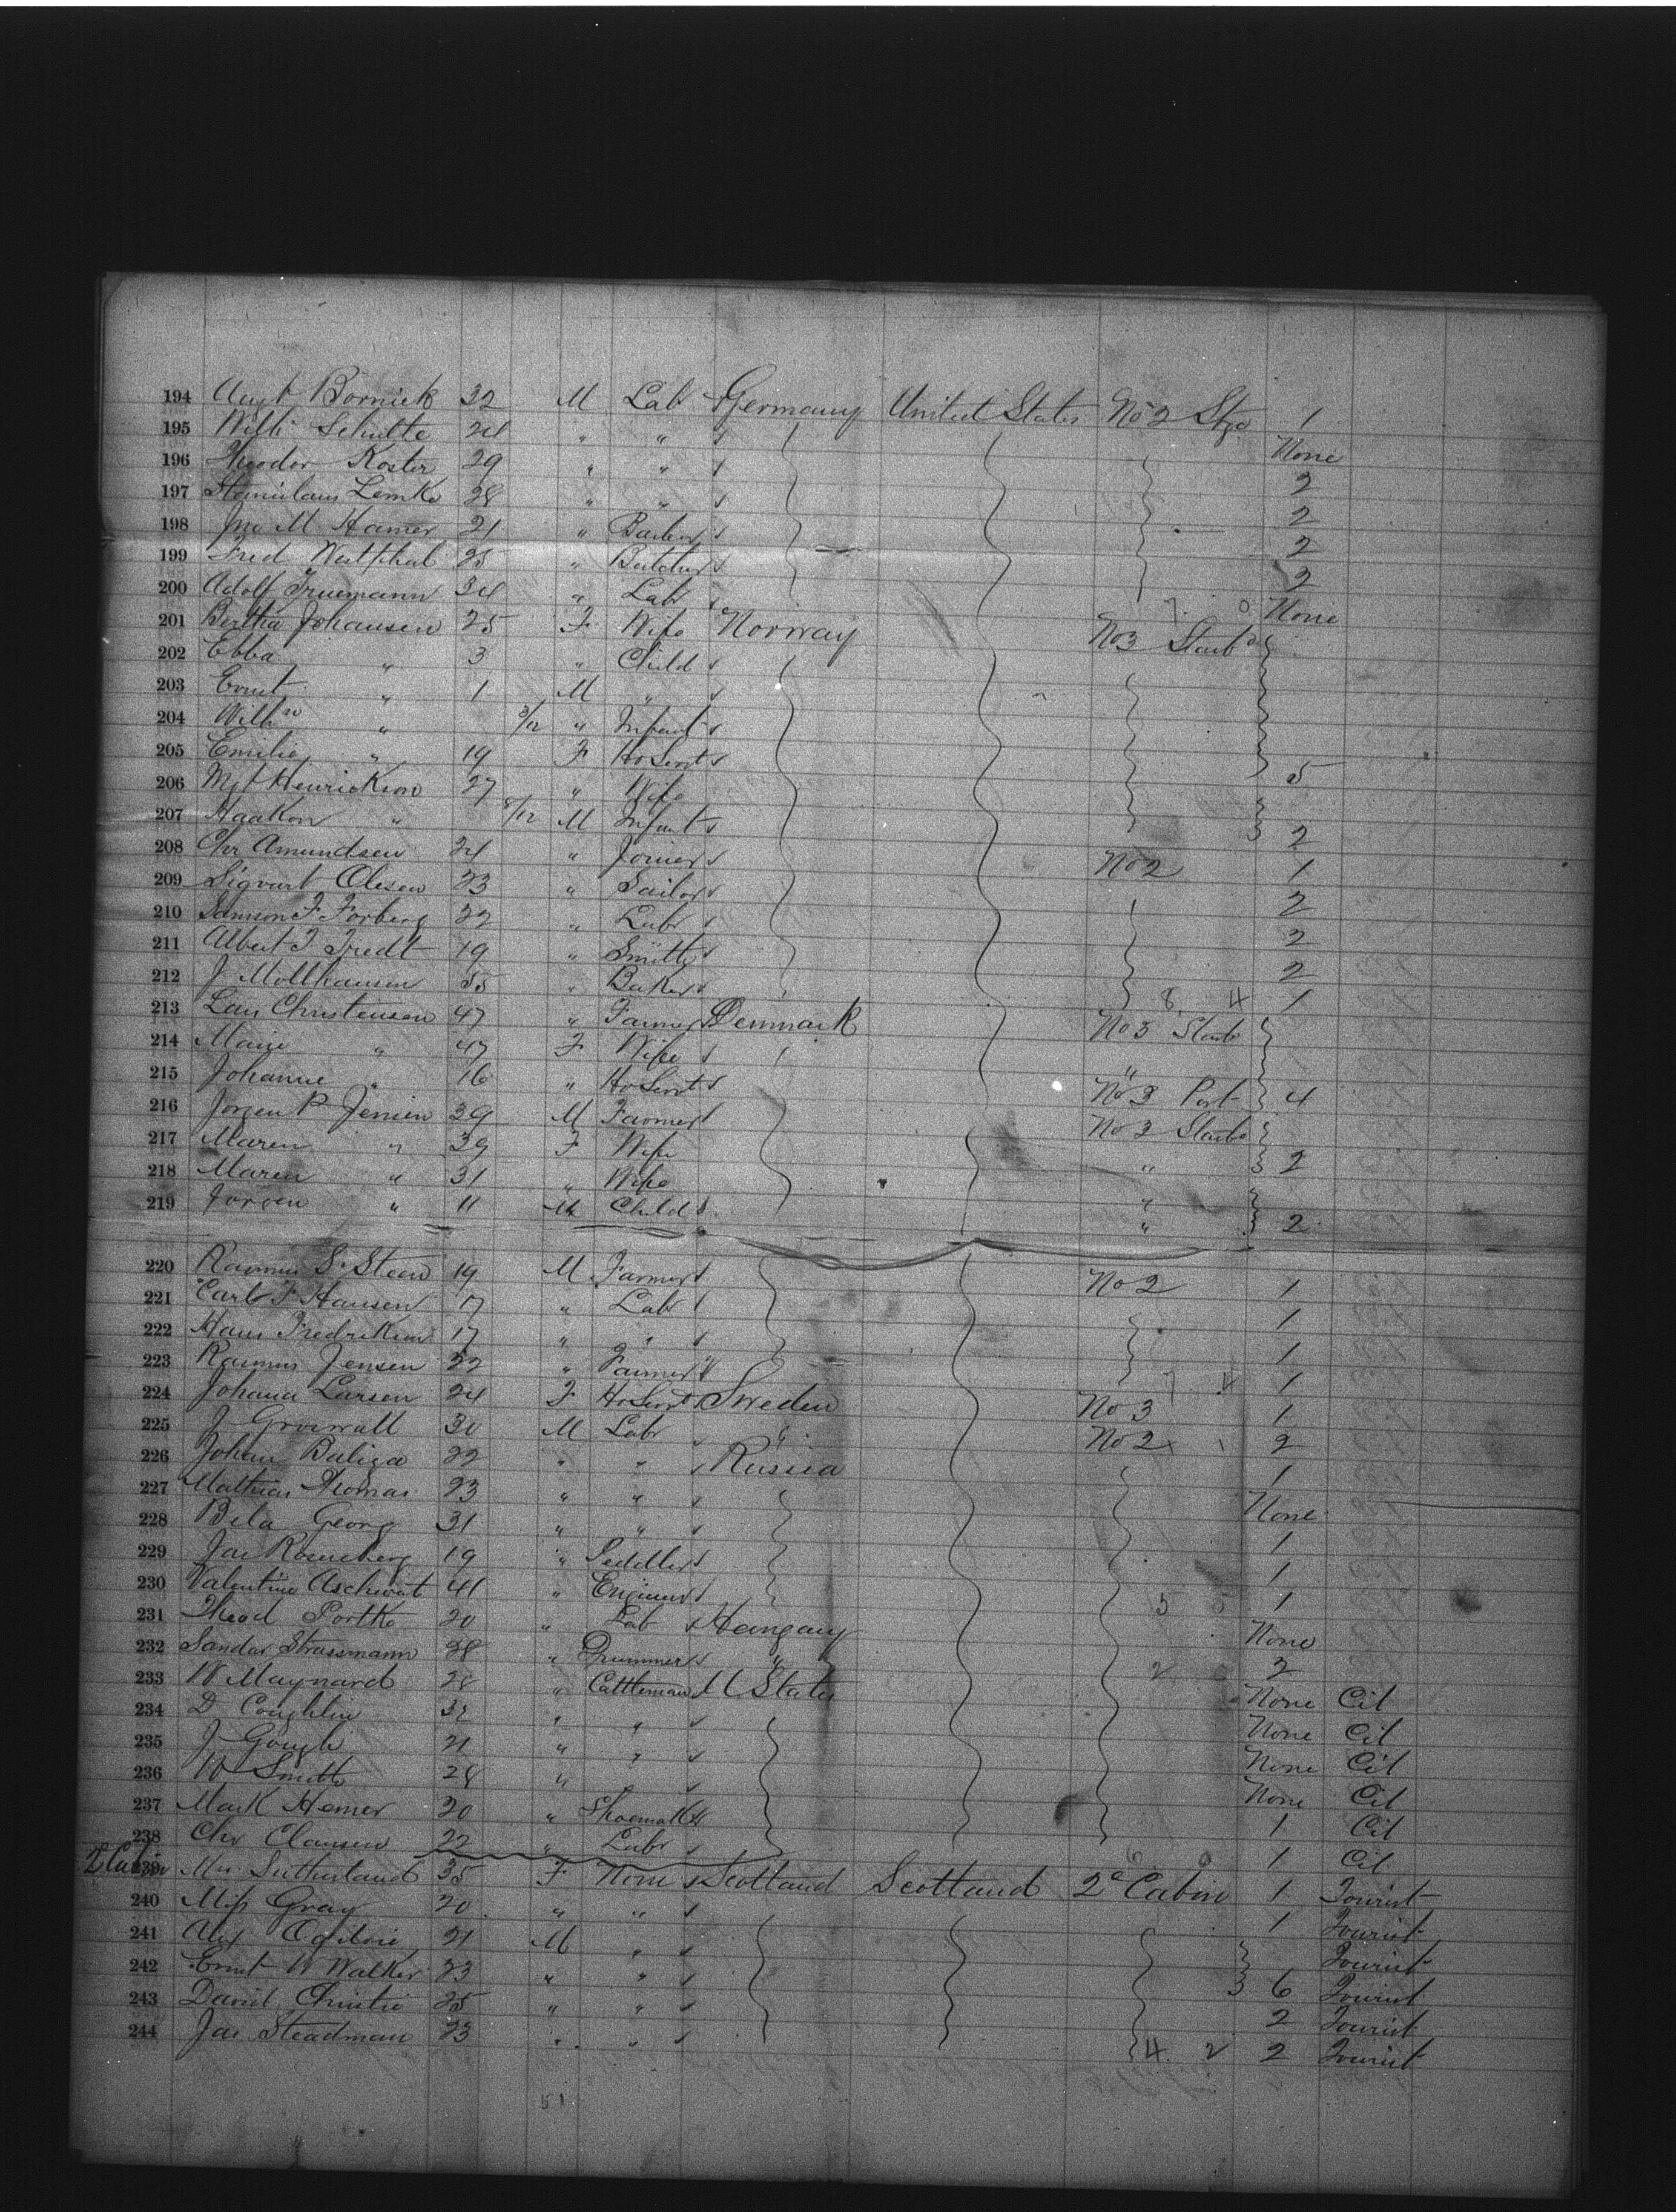 194 Augt Bornick 32 M Lab Germany United States No 2 Stge 1
195 Willi Schulte 24 " " None
196 Theodor Koster 29 " " 2
197 Stanislaus Lemke 28 " " 2
198 Jno M Hamer 21 " Barber 2
199 Fred Westphal 25 " Butcher 2
200 Adolf Truemann 34 " Labr 7 0 None
201 Bertha Johansen 25 F Wife Norway No 3 Starbd
202 Ebba " 3 " Child
203 Ernst " 1 M "
204 Wilhm " 3/12 " Infant
205 Emilie " 19 F Ho Servt 5
206 Mgt Henrickson 27 " Wife
207 Haakon " 8/12 M Infant 2
208 Chr Amundsen 24 " Joiner No 2 1
209 Sigvart Olesen 23 " Sailor 2
210 F. Forberg 22 " Labr 2
211 Albert T Tredt 19 " Smith 2
212 J Mollhausen 35 " Baker 8 4 1
213 Lars Christensen 47 " Farmer Denmark No 3 Starb
214 " 47 F Wife "
215 Johanne " 16 " Ho Servt No 3 Port 4
216 Jorgen P Jensen 39 M Farmer No 3 Starb
217 Maren " 39 F Wife " 2
218 Maren " 31 " Wife "
219 Jorgen " 11 M Child " 2
220 Rasmus S. Steen 19 M Farmer No 2 1
221 Carl F Hansen 17 " Labr 1
222 Hans Fredriksen 17 " " 1
223 Rasmus Jensen 22 " Farmer 7 4 1
224 Johana Larsen 24 F Ho Servt Sweden No 3 1
225 J 30 M Labr " No 2 2
226 Johan Baliga 22 " " Russia 1
227 Mathias Thomas 23 " " None
228 Bela Georg 31 " " 1
229 Jac Rosenberg 19 " Peddler 1
230 Valentine 41 " Engineer 5 5 1
231 Portko 20 " Lab Hungary None
232 Sandor Strassmann 28 " Drummer " 2 2
233 W Maynard 28 " Cattleman U States None Cit
234 D Coughlin 32 " " None Cit
235 J Gough 21 " " None Cit
236 W Smith 28 " " None Cit
237 Mark Hemer 20 " Shoemaker 1 Cit
238 Chr Clausen 22 " Labr 6 0 1 Cit
2 Cabin
239 Mrs Sutherland 35 F None Scotland Scotland 2e Cabin 1 Tourist
240 Miss Gray 20 " " 1 Tourist
241 Alex Ogilvie 21 M " Tourist
242 Ernst W Walker 23 " " 6 Tourist
243 David Christie 25 " " 2 Tourist
244 Jas Steadman 23 " " 4 2 2 Tourist
51